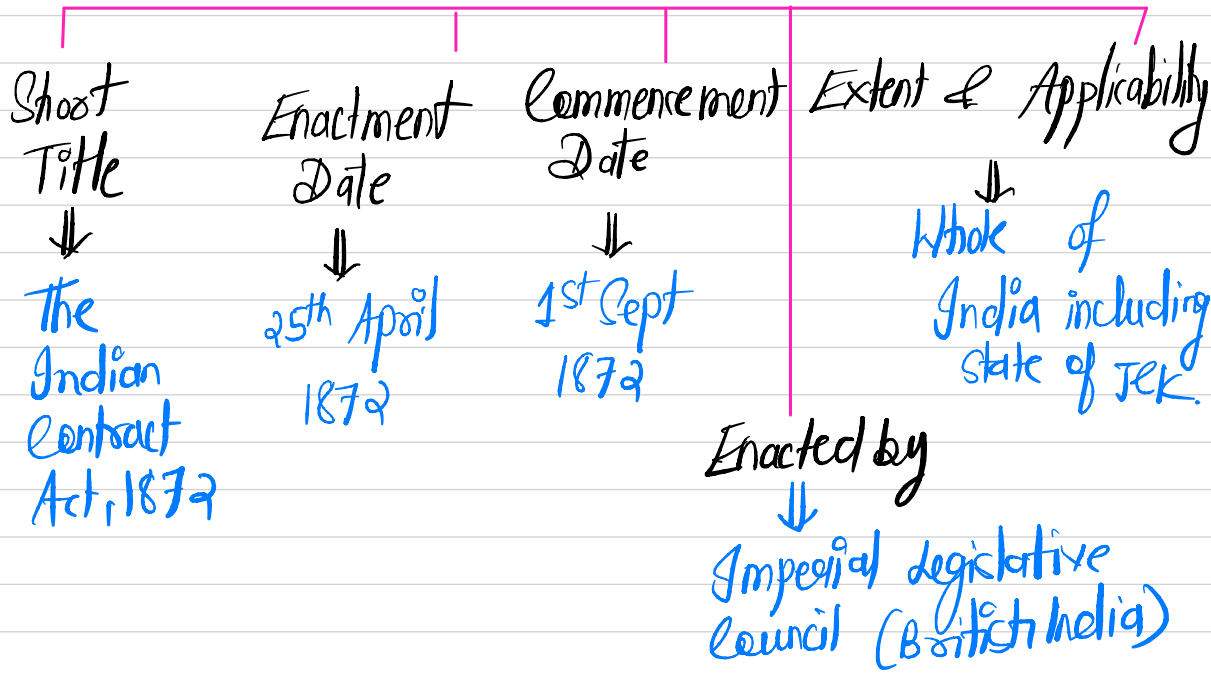 Short
Title
The
Indian
Contract
Act, 1872
Enactment
Date
25th April
1872
Commencement
Date
1st Sept
1872
Extent & Applicability
Whole of
India including
State of J&K.
Enacted by
Imperial Legislative
Council (British India)